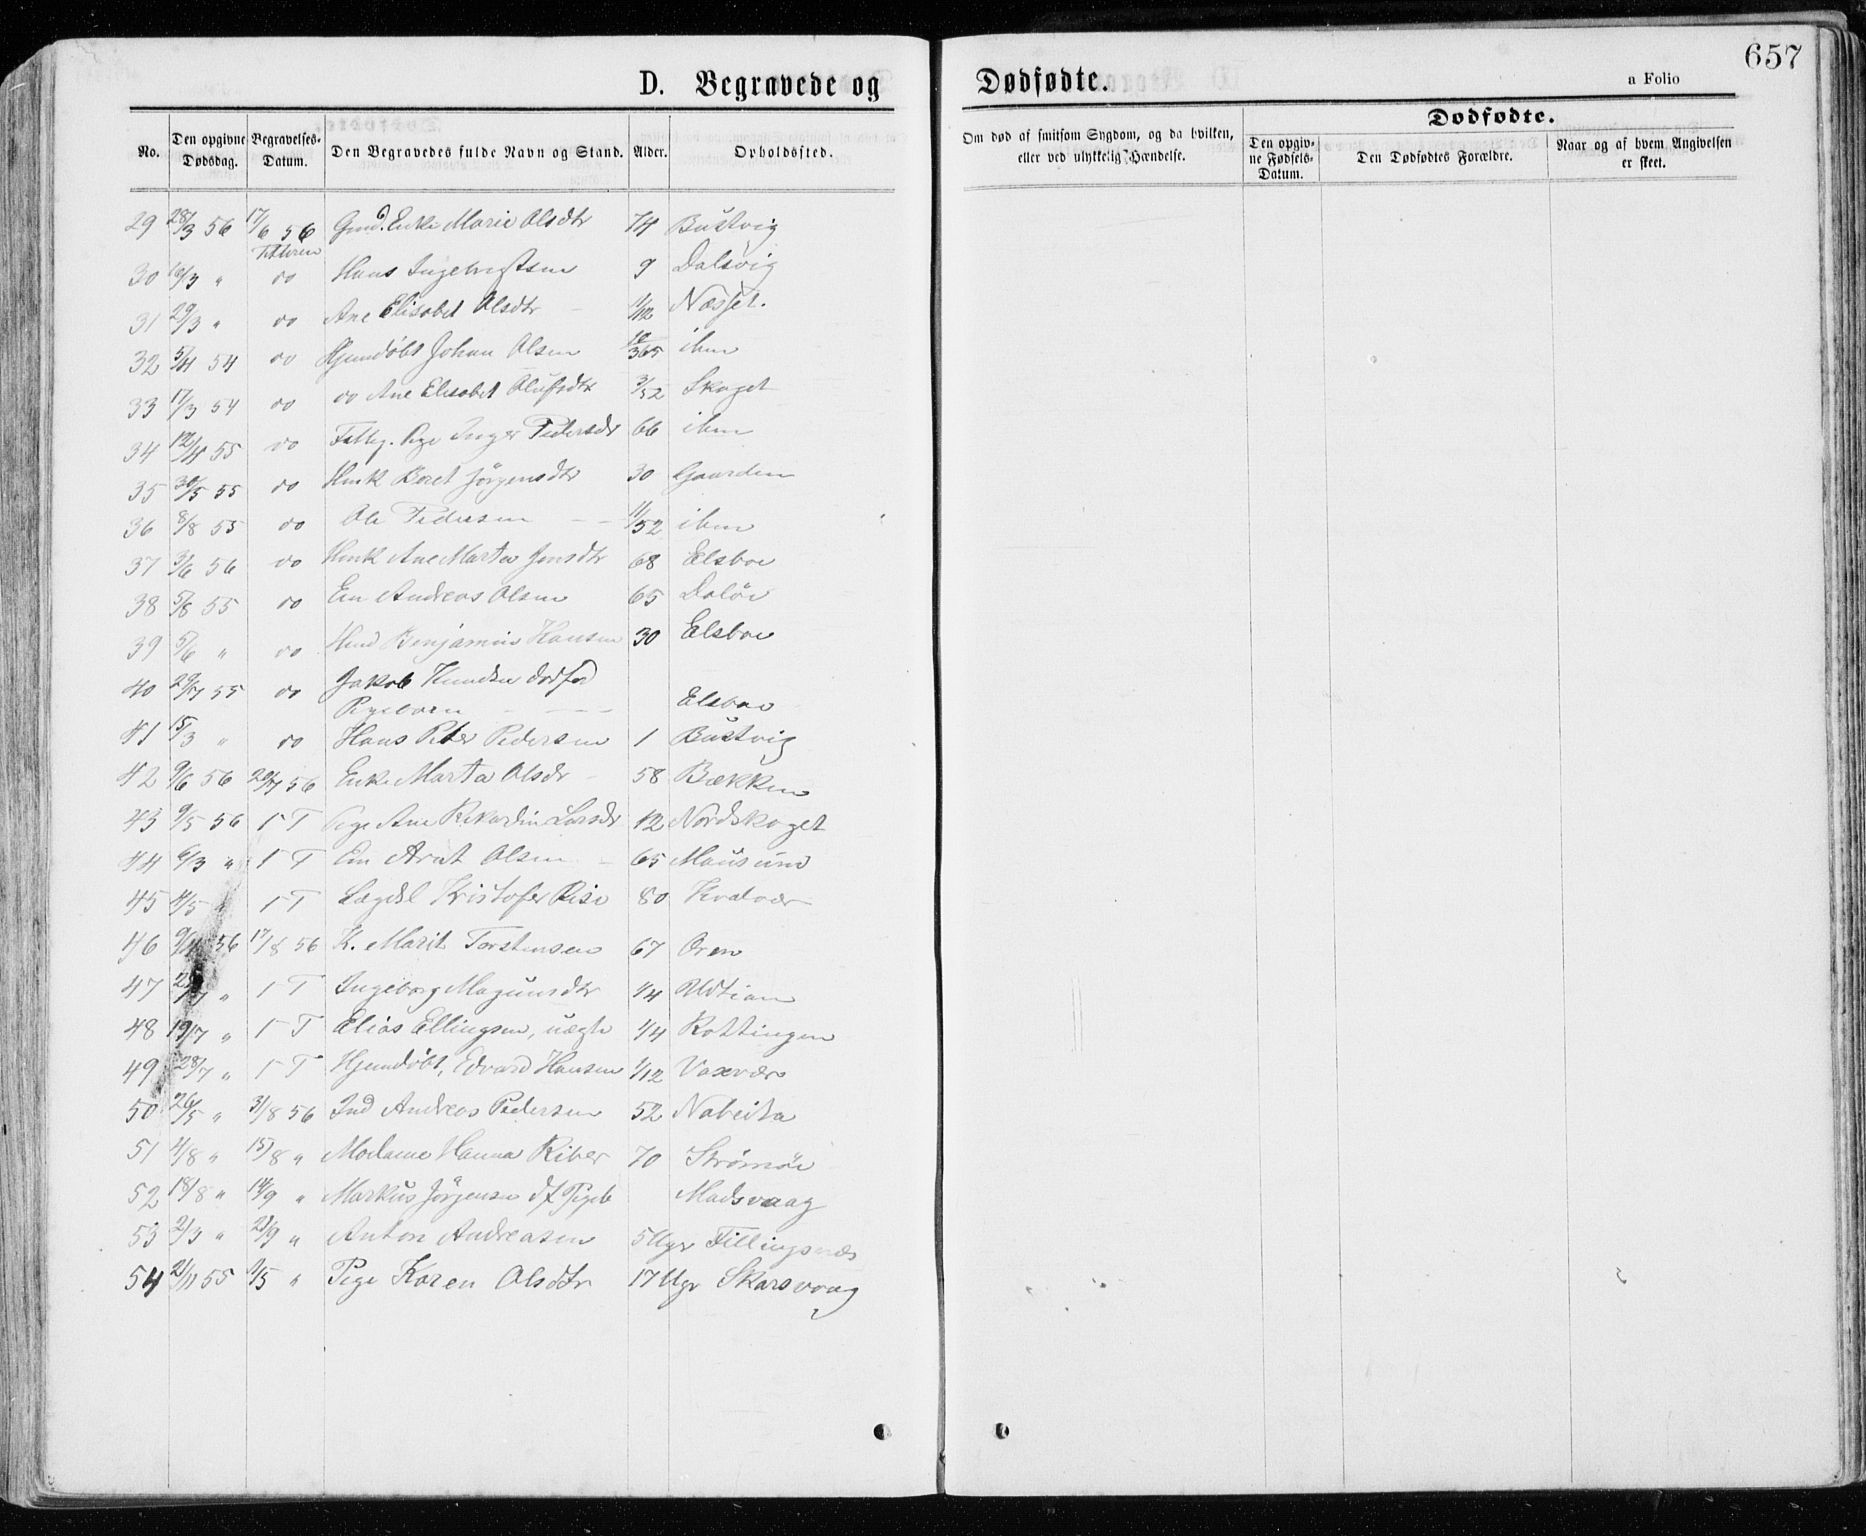 657
D. Begravede og Dødfødte. a Folio
No. Den opgivne Dødsdag. Begravelses-Datum. Den Begravedes fulde Navn og Stand. Alder. Opholdssted. Om død af smitsom Sygdom, og da hvilken, eller ved ulykkelig Hændelse. Dødfødte. Den opgivne Fødsels-Datum. Den Dødfødtes Forældre. Naar og af hvem Angivelsen er skeet.
29 28/3 56 17/6 56 Titteren Gmd. Enke Marie Olsdtr 74 Bustvig
30 16/3 " do Hans Ingebrigtsen 9 Dalsvig
31 29/3 " do Ane Elisabet Olsdtr 1/12 Næsset.
32 5/4 54 do Hjemdøbt Johan Olsen 10/365 ibm
33 17/3 54 do do Ane Elisabet Olufsdtr 3/52 Skaget
34 12/4 55 do Fattig. Pige Inger Pedersdr 66 ibm
35 30/5 55 do Hmk Beret Jörgensdtr 30 Gaarden
36 8/8 55 do Ole Pedersen 11/52 ibm
37 3/6 56 do Hmk Ane Marta Jensdtr 68 Elsboe
38 5/8 55 do Em Andreas Olsen 65 Daløe
39 5/6 " do Hmd Benjamin Hansen 30 Elsboe
40 29/7 55 do Jakob Knudsen dødfød Pigebarn Elsboe
41 15/3 " do Hans Peter Pedersen 1 Bustvig
42 9/6 56 20/7 56 Enke Marta Olsdr 58 Bækken
43 9/5 56 1 T Pige Ane Rikardin Larsdr 12 Nordskaget
44 6/3 " 1 T Em Arnt Olsen 65 Mausund
45 4/5 " 1 T Lægdsl Kristofer Risø 80 Kvalvær
46 9/4 56 17/8 56 K. Marit Torstensen 67 Oren
47 1 T Ingeborg Magnusdtr 1/4 Udtian
48 19/7 " 1 T Elias Ellingsen, uægte 1/4 Rottingen
49 28/7 " 1 T Hjemdöbt, Edvard Hansen 1/12 Vaxvær
50 26/5 " 31/8 56 Ind Andreas Pedersen 52 Nabeita
51 4/8 " 15/8 " Madame Hanna Riber 70 Strømöe
52 18/8 " 14/9 " Markus Jörgensen df Pigeb Madsvaag
53 2/3 " 21/9 " Anton Andreasen 5 Uger Fillingsnæs
54 21/11 55 1/5 " Pige Karen Olsdtr 17 Uger Skarsvaag